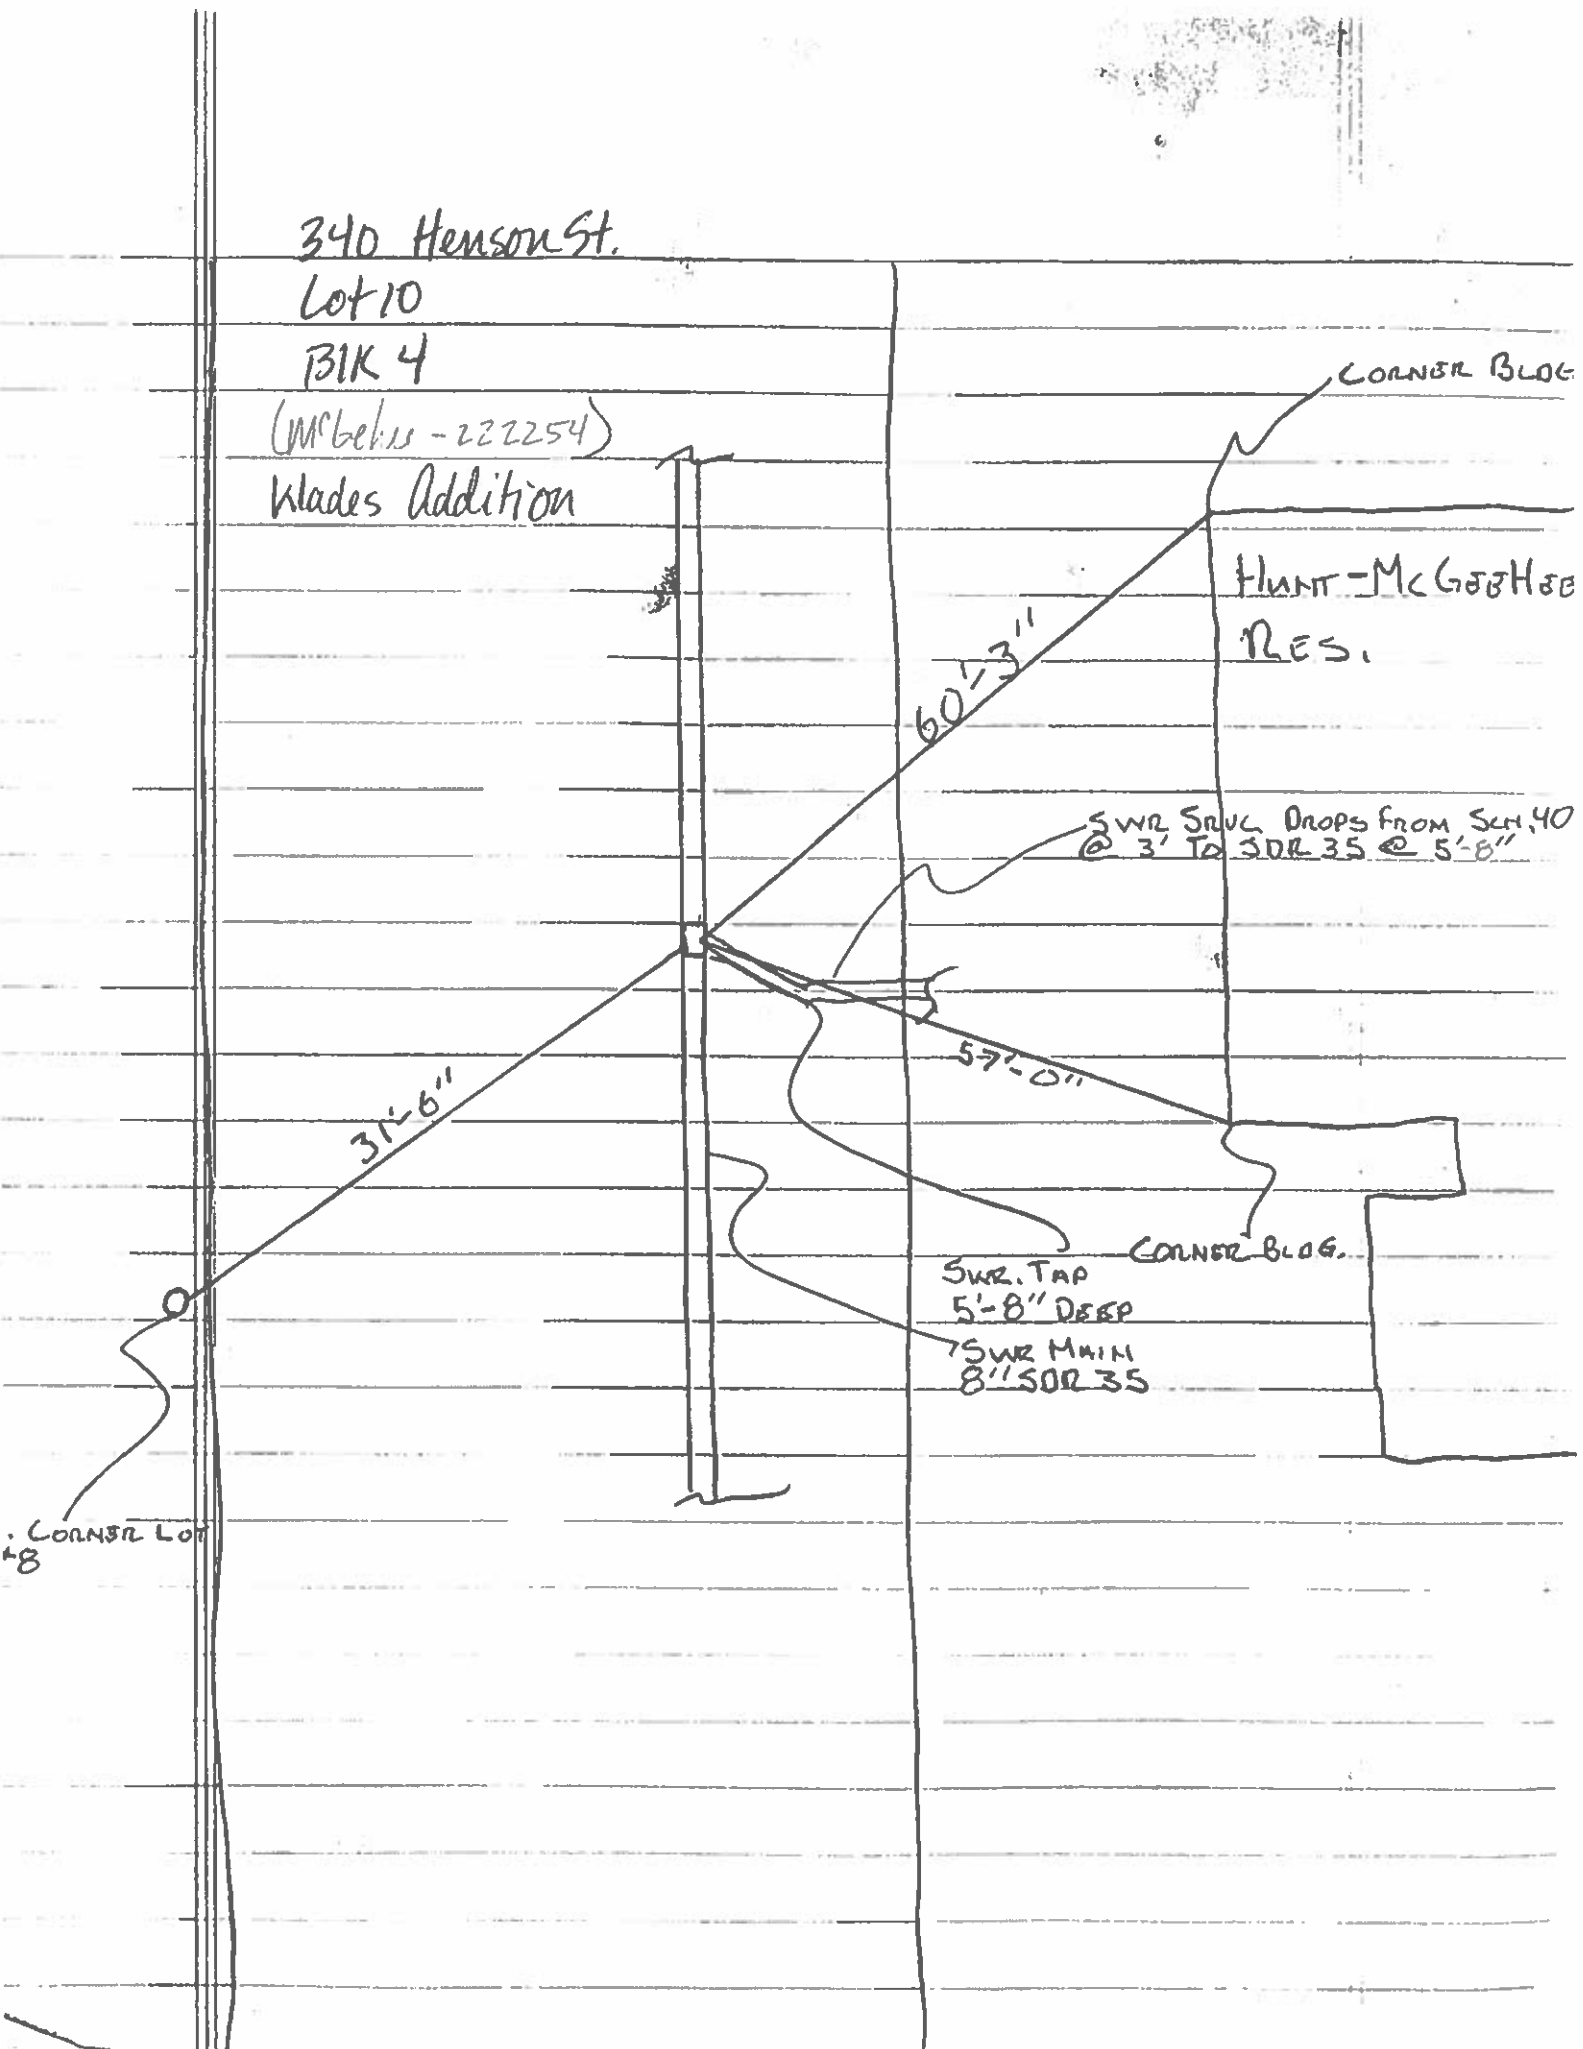 340 Henson St.
Lot 10
Blk 4
(McGehee - 222254)
Klades Addition
CORNER BLDG
HUNT-McGEEHEE
RES.
60'-3"
SWR SRVC DROPS FROM SCH. 40
@ 3' TO SDR 35 @ 5'-8"
57'-0"
31'-6"
CORNER BLDG.
SWR. TAP
5'-8" DEEP
SWR MAIN
8" SDR 35
. CORNER LOT
8